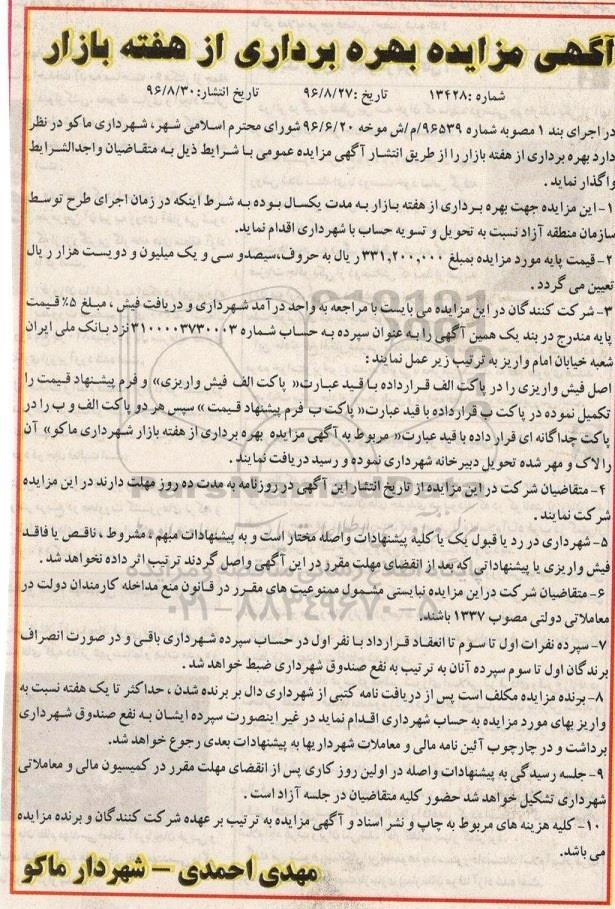 آگهی مزایده بهره برداری از هفته بازار
شماره: ۱۳۴۲۸ تاریخ: ۹۶/۸/۲۷ تاریخ انتشار: ۹۶/۸/۳۰
در اجرای بند ۱ مصوبه شماره ۹۶۵۳۹/م/ش موخه ۹۶/۶/۲۰ شورای محترم اسلامی شهر، شهرداری ماکو در نظر
دارد بهره برداری از هفته بازار را از طریق انتشار آگهی مزایده عمومی با شرایط ذیل به متقاضیان واجدالشرایط
واگذار نماید.
۱- این مزایده جهت بهره برداری از هفته بازار به مدت یکسال بوده به شرط اینکه در زمان اجرای طرح توسط
سازمان منطقه آزاد نسبت به تحویل و تسویه حساب با شهرداری اقدام نماید.
۲- قیمت پایه مورد مزایده بمبلغ ۳۳۱,۲۰۰,۰۰۰ ریال به حروف،سیصدو سی و یک میلیون و دویست هزار ریال
تعیین می گردد.
۳- شرکت کنندگان در این مزایده می بایست با مراجعه به واحد درآمد شهرداری و دریافت فیش، مبلغ ۵٪ قیمت
پایه مندرج در بند یک همین آگهی را به عنوان سپرده به حساب شماره ۳۱۰۰۰۰۳۷۳۰۰۰۳ نزد بانک ملی ایران
شعبه خیابان امام واریز به ترتیب زیر عمل نمایند:
اصل فیش واریزی را در پاکت الف قرارداده با قید عبارت« پاکت الف فیش واریزی» و فرم پیشنهاد قیمت را
تکمیل نموده در پاکت ب قرارداده با قید عبارت« پاکت ب فرم پیشنهاد قیمت» سپس هر دو پاکت الف و ب را در
پاکت جداگانه ای قرار داده با قید عبارت« مربوط به آگهی مزایده بهره برداری از هفته بازار شهرداری ماکو» آن
را لاک و مهر شده تحویل دبیرخانه شهرداری نموده و رسید دریافت نمایند.
۴- متقاضیان شرکت در این مزایده از تاریخ انتشار این آگهی در روزنامه به مدت ده روز مهلت دارند در این مزایده
شرکت نمایند.
۵- شهرداری در رد یا قبول یک یا کلیه پیشنهادات واصله مختار است و به پیشنهادات مبهم، مشروط، ناقص یا فاقد
فیش واریزی یا پیشنهاداتی که بعد از انقضای مهلت مقرر در این آگهی واصل گردند ترتیب اثر داده نخواهد شد.
۶- متقاضیان شرکت در این مزایده نبایستی مشمول ممنوعیت های مقرر در قانون منع مداخله کارمندان دولت در
معاملاتی دولتی مصوب ۱۳۳۷ باشند.
۷- سپرده نفرات اول تا سوم تا انعقاد قرارداد با نفر اول در حساب سپرده شهرداری باقی و در صورت انصراف
برندگان اول تا سوم سپرده آنان به ترتیب به نفع صندوق شهرداری ضبط خواهد شد.
۸- برنده مزایده مکلف است پس از دریافت نامه کتبی از شهرداری دال بر برنده شدن، حداکثر تا یک هفته نسبت به
واریز بهای مورد مزایده به حساب شهرداری اقدام نماید در غیر اینصورت سپرده ایشان به نفع صندوق شهرداری
برداشت و در چارچوب آئین نامه مالی و معاملات شهرداریها به پیشنهادات بعدی رجوع خواهد شد.
۹- جلسه رسیدگی به پیشنهادات واصله در اولین روز کاری پس از انقضای مهلت مقرر در کمیسیون مالی و معاملاتی
شهرداری تشکیل خواهد شد حضور کلیه متقاضیان در جلسه آزاد است.
۱۰- کلیه هزینه های مربوط به چاپ و نشر اسناد و آگهی مزایده به ترتیب بر عهده شرکت کنندگان و برنده مزایده
می باشد.
مهدی احمدی – شهردار ماکو